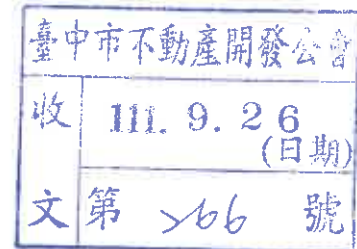 臺中市不動產開發公會
收 111. 9. 26
(日期)
文 第 266 號